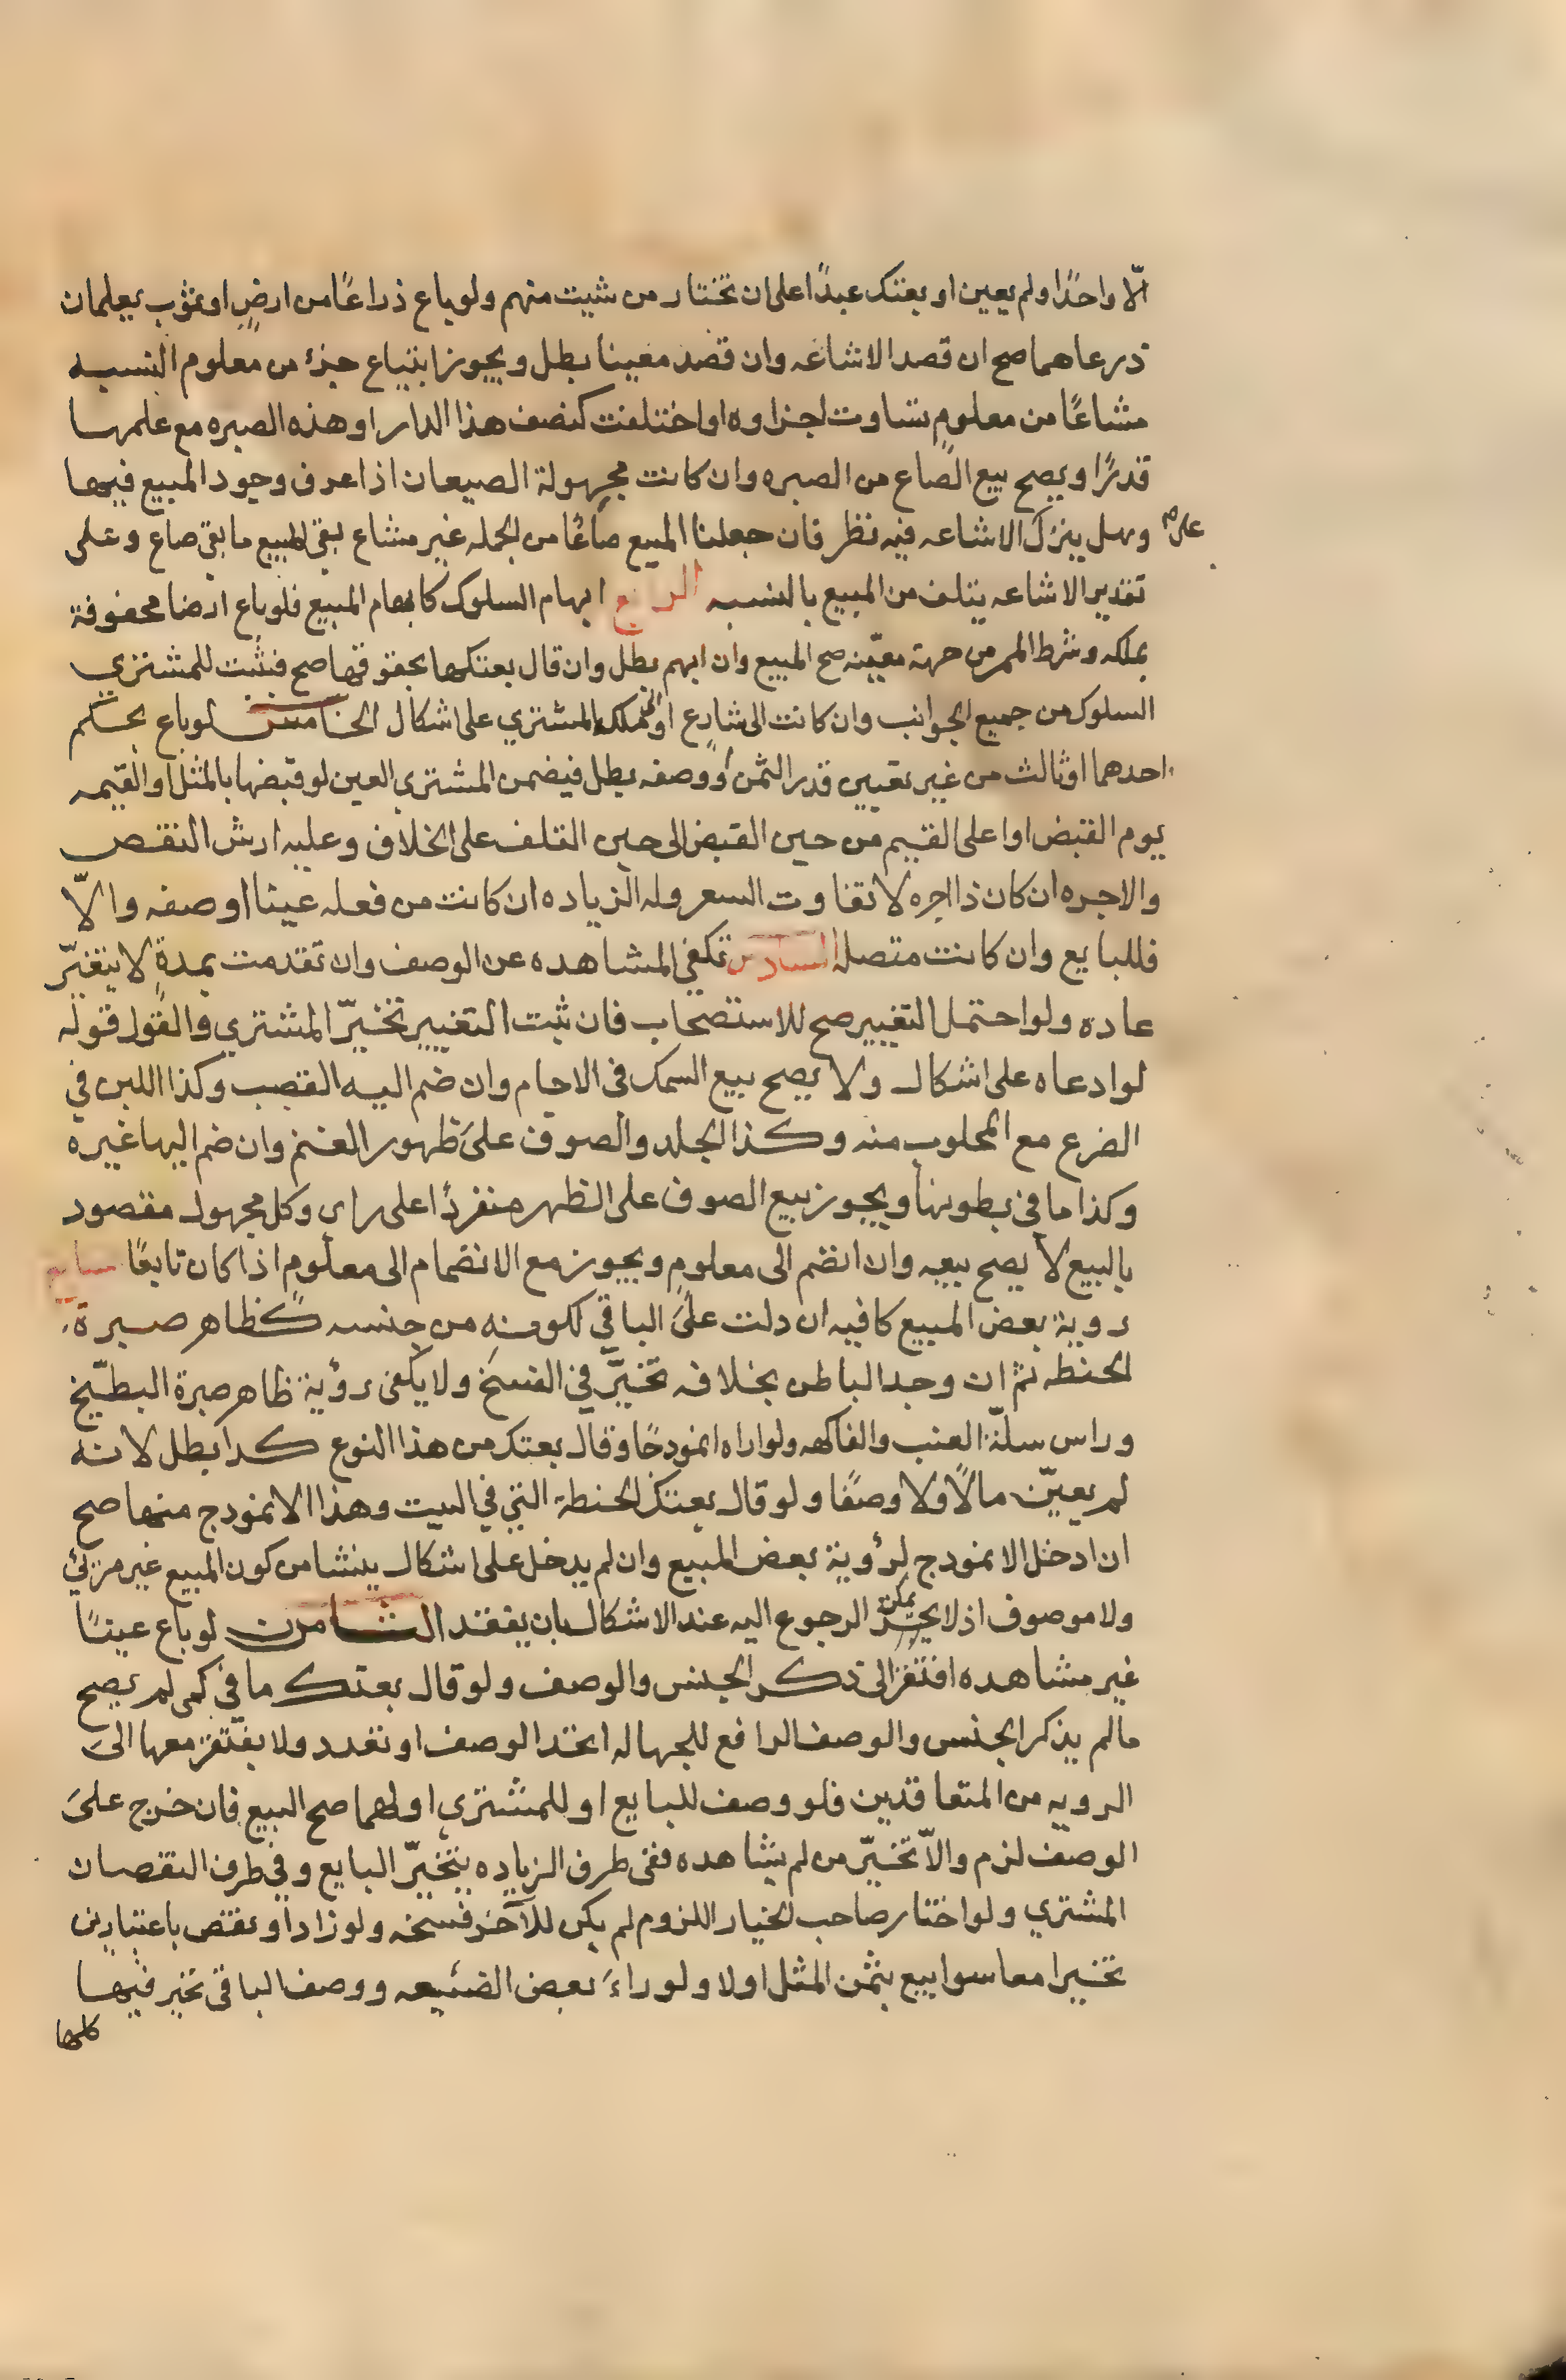 الّا واحدًا ولم يعين او بعتك عبدًا على ان تختار من شيت منهم ولو باع ذراعًا من ارضٍ او ثوب يعلمان
ذرعاهما صح ان قصد الاشاعه وان قصد معينا بطل ويجوز ابتياع جزء من معلوم النسبه
مشاعًا من معلومٍ تساوت اجزاوه او اختلفت كنصف هذا الدار او هذه الصبره مع علمها
قدرًا ويصح بيع الصاع من الصبره وان كانت مجهولة الصيعان اذا عرف وجود المبيع فيها
وهل ينزل على الاشاعه فيه نظر فان جعلنا المبيع صاعًا من الجمله غير مشاع بقى المبيع ما بقى صاع وعلى
تقدير الاشاعه يتلف من المبيع بالنسبه الرابع ابهام السلوك كابهام المبيع فلو باع ارضا محفوفة
بملكه وشرط الممر من جهة معيّنه صح المبيع وان ابهم بطل وان قال بعتكها بحقوقها صح فثبت للمشتري
السلوك من جميع الجوانب وان كانت الى شارع او الى ملك المشتري على اشكال الخامس لو باع بحكم
احدهما او ثالث من غير تعيين قدر الثمن او وصفه بطل فيضمن المشتري العين لو قبضها بالمثل او القيمه
يوم القبض او اعلى القيم من حين القبض الى حين التلف على الخلاف وعليه ارش النقص
والاجره ان كان ذا اجره لا تفاوت السعر وله الزياده ان كانت من فعله عينا او صفه والّا
فللبايع وان كانت متصله السادس تكفي المشاهده عن الوصف وان تقدمت بمدةٍ لا يتغيّر
عاده ولو احتمل التغيير صح للاستصحاب فان ثبت التغيير تخيّر المشتري والقول قوله
لو ادعاه على اشكال ولا يصح بيع السمك في الاجام وان ضم اليه القصب وكذا اللبن في
الضرع مع المحلوب منه وكذا الجلد والصوف على ظهور الغنم وان ضم اليها غيره
وكذا ما في بطونها ويجوز بيع الصوف على الظهر منفردًا على راى وكل مجهول مقصود
بالبيع لا يصح بيعه وان انضم الى معلومٍ ويجوز مع الانضمام الى معلومٍ اذا كان تابعًا السابع
روية بعض المبيع كافيه ان دلت على الباقي لكونه من جنسه كظاهر صبرة
الحنطه ثم ان وجد الباطن بخلافه تخيّر في الفسخ ولا يكفى رؤية ظاهر صبرة البطّيخ
وراس سلّة العنب والفاكهه ولو اراه انموذجًا وقال بعتك من هذا النوع كذا بطل لانه
لم يعيّن مالًا ولا وصفًا ولو قال بعتك الحنطة التي في البيت وهذا الانموذج منها صح
ان ادخل الانموذج لرؤية بعض المبيع وان لم يدخل على اشكال ينشا من كون المبيع غير مرئي
ولا موصوف اذ لا يمكن الرجوع اليه عند الاشكال بان يفقد الثامن لو باع عينًا
غير مشاهده افتقر الى ذكر الجنس والوصف ولو قال بعتك ما في كمى لم يصح
ما لم يذكر الجنس والوصف الرافع للجهاله اتحد الوصف او تعدد ولا يفتقر معها الى
الرويه من المتعاقدين فلو وصف للبايع او للمشتري او لهما صح البيع فان خرج على
الوصف لزم والّا تخيّر من لم يشاهده ففى طرف الزياده يتخيّر البايع وفي طرف النقصان
المشتري ولو اختار صاحب الخيار اللزوم لم يكن للآخر فسخه ولو زاد او نقص باعتبارين
تخيرا معا سوا بيع بثمن المثل اولا ولو راءَ بعض الضيعه ووصف الباقي تخير فيها
كلها